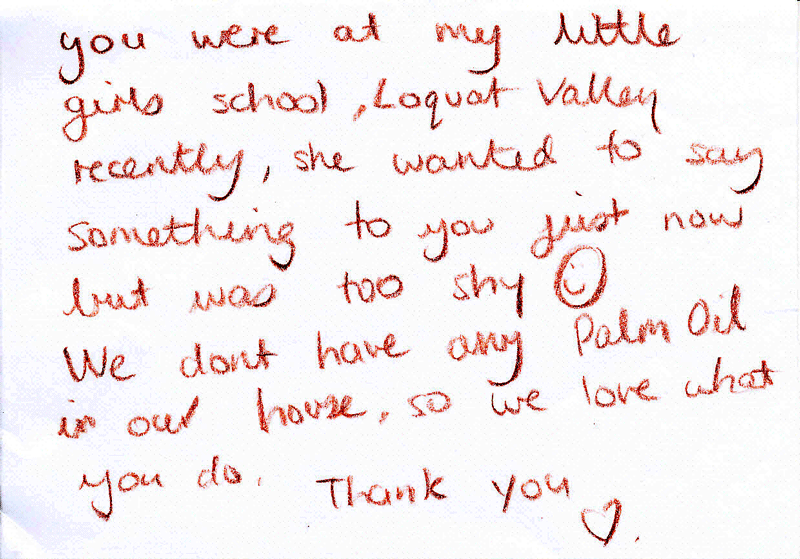 you were at my little
girls school, Loquat Valley
recently, she wanted to say
something to you just now
but was too shy ☺
We dont have any Palm Oil
in our house, so we love what
you do. Thank you ♡.